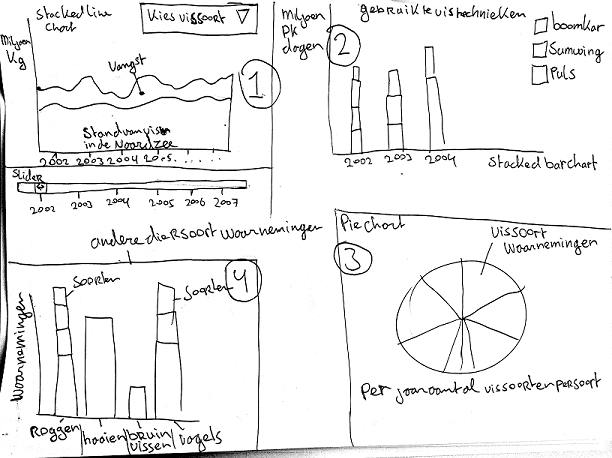 Stacked Line
Chart
Kies vissoort
Miljoen
Kg
Vangst
1
Stand van vis
in de Noordzee
2002 2003 2004 2005......
Slider
2002 2003 2004 2005 2006 2007
Miljoen
PK
dagen
gebruikte vistechnieken
2
boomkor
Sumwing
Puls
2002 2003 2004
Stacked bar chart
andere diersoort waarnemingen
4
Soorten
Soorten
Waarnemingen
Roggen
haaien
bruin
vissen
vogels
Pie Chart
3
Vissoort
Waarnemingen
Per jaar aantal vissoorten per soort